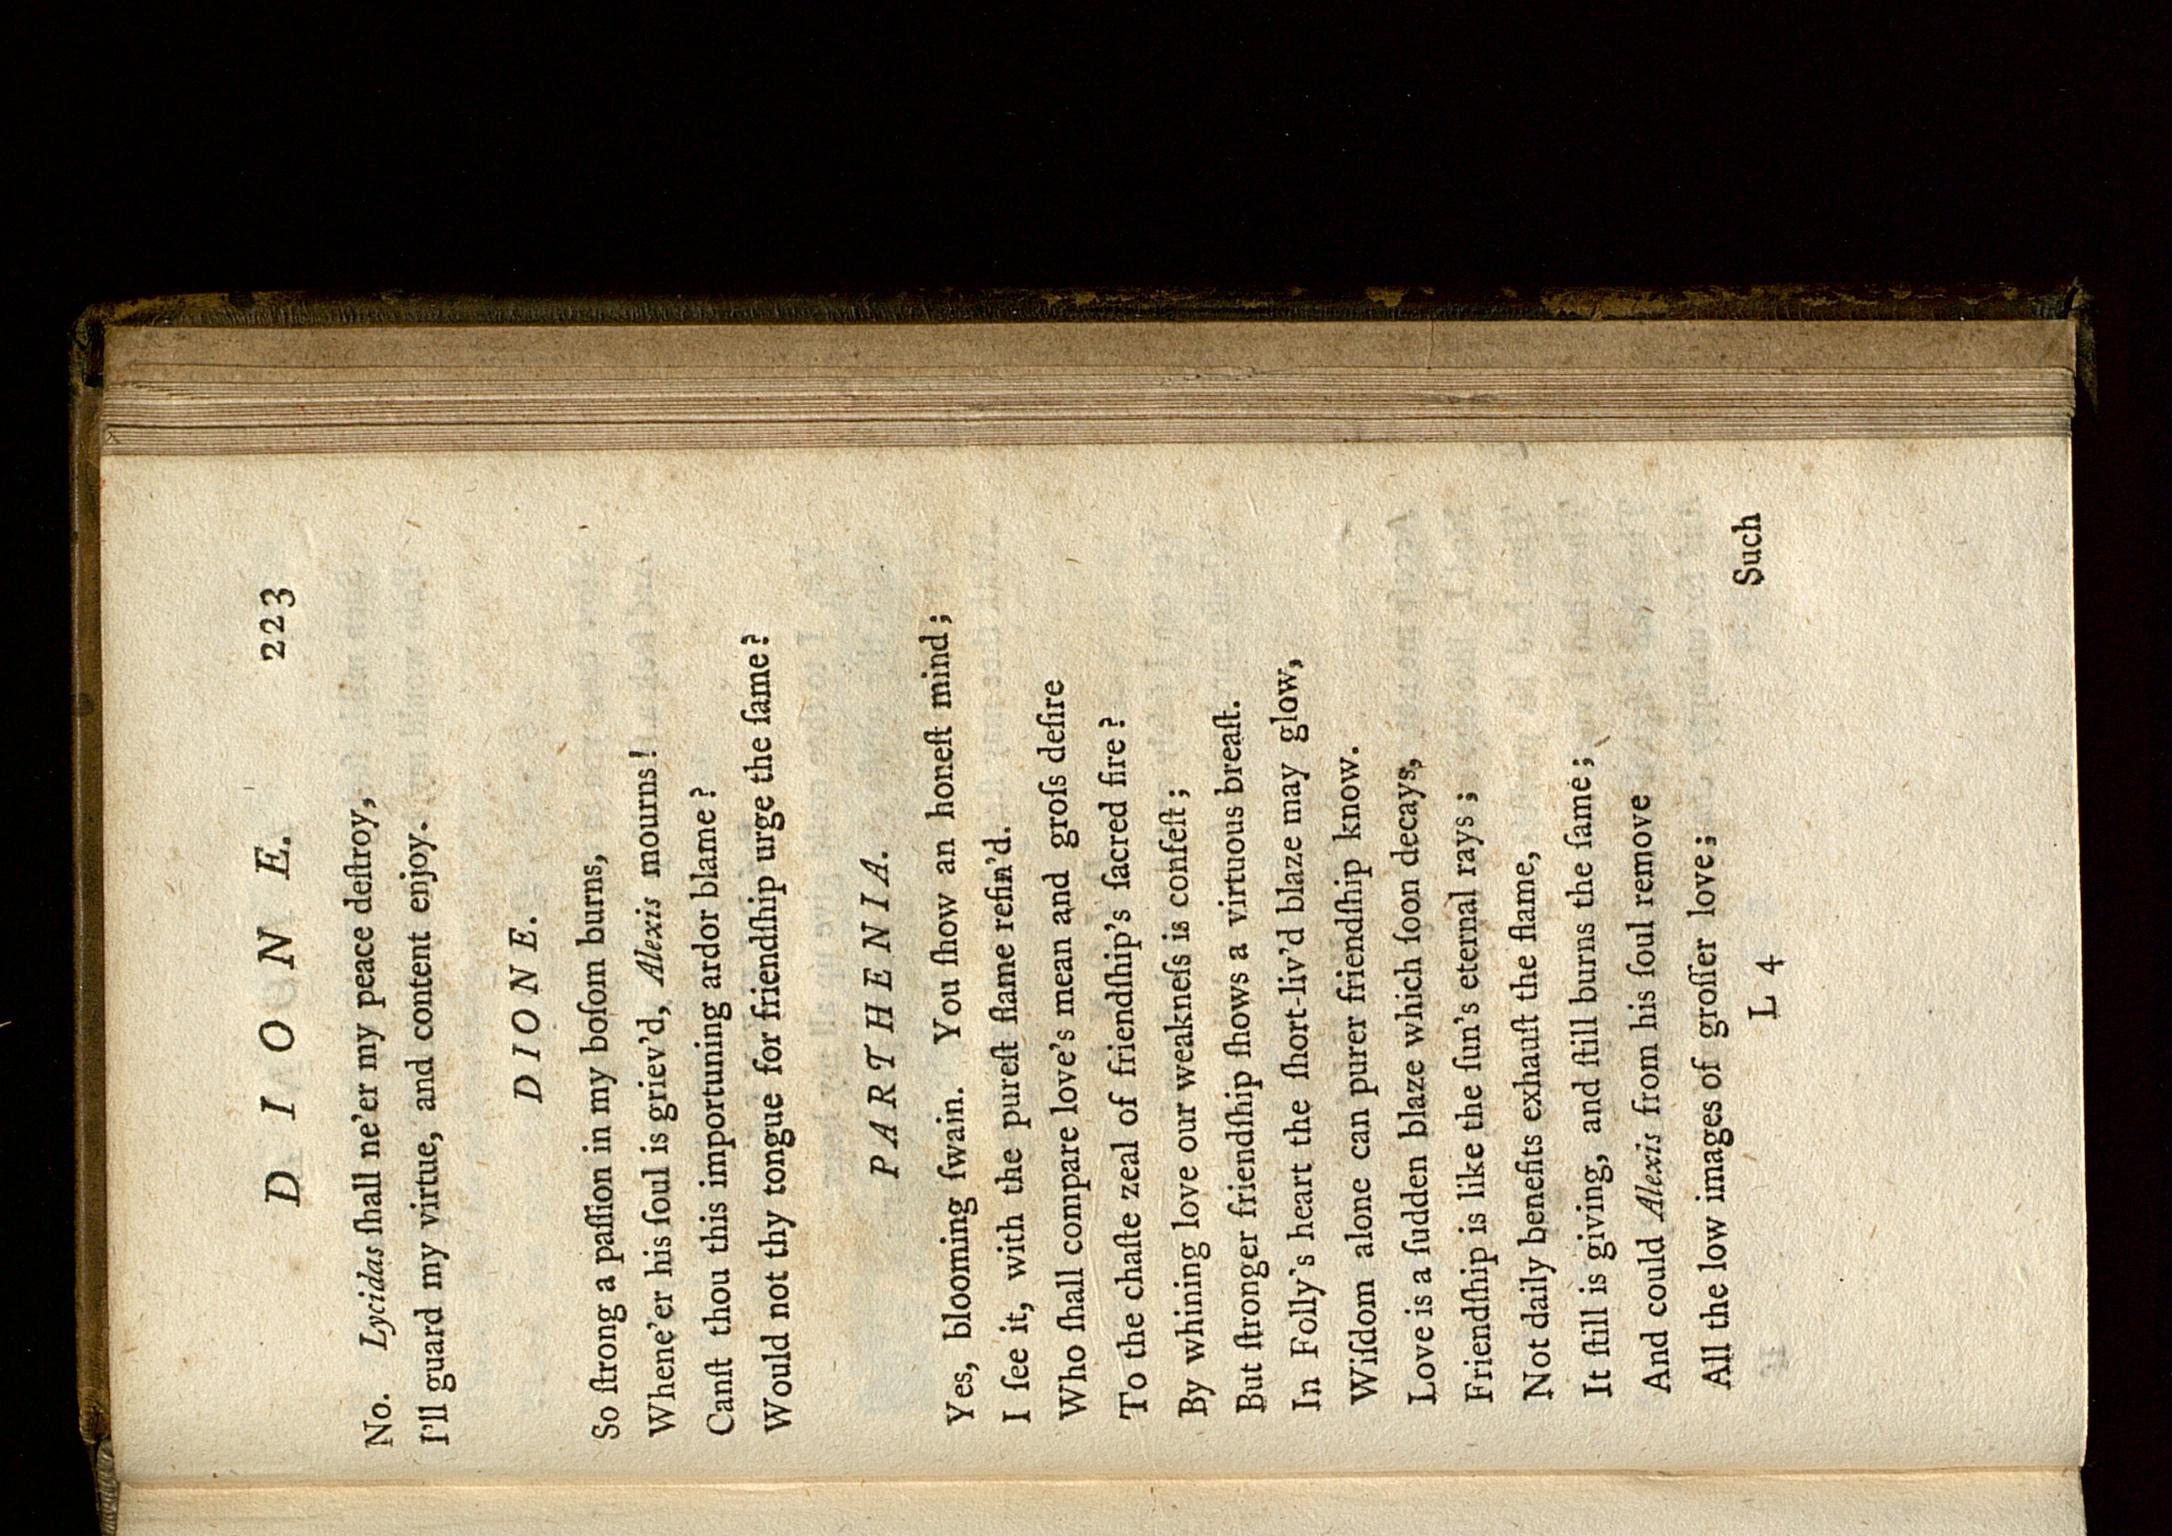 D I O N E. 223
No. Lycidas ſhall ne'er my peace deſtroy,
I'll guard my virtue, and content enjoy.
DIONE.
So ſtrong a paſſion in my boſom burns,
Whene'er his ſoul is griev'd, Alexis mourns!
Canſt thou this importuning ardor blame?
Would not thy tongue for friendſhip urge the ſame?
PARTHENIA.
Yes, blooming ſwain. You ſhow an honeſt mind;
I ſee it, with the pureſt flame refin'd.
Who ſhall compare love's mean and groſs deſire
To the chaſte zeal of friendſhip's ſacred fire?
By whining love our weakneſs is confeſt;
But ſtronger friendſhip ſhows a virtuous breaſt.
In Folly's heart the ſhort-liv'd blaze may glow,
Wiſdom alone can purer friendſhip know.
Love is a ſudden blaze which ſoon decays,
Friendſhip is like the ſun's eternal rays;
Not daily benefits exhauſt the flame,
It ſtill is giving, and ſtill burns the ſame;
And could Alexis from his ſoul remove
All the low images of groſſer love;
L 4 Such